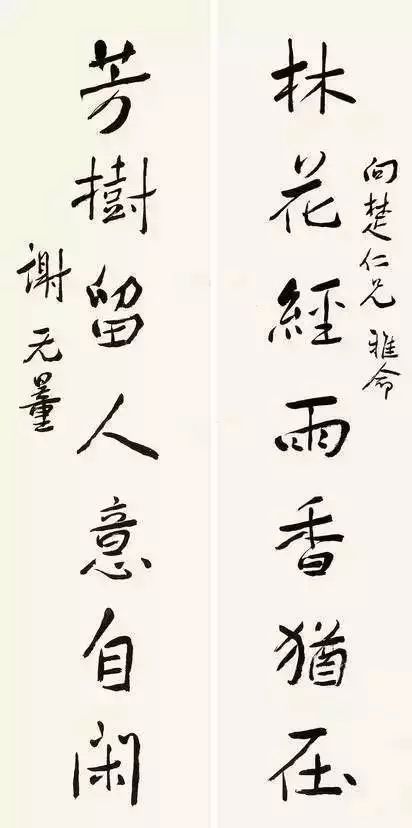 林花經雨香猶在
向楚仁兄 雅命
芳樹留人意自閑
謝无量